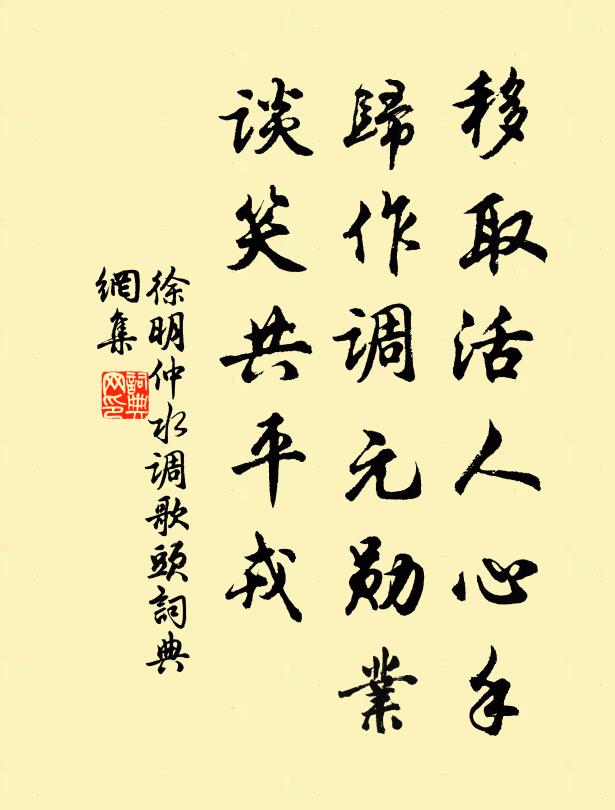 移取活人心手
歸作调元勋業
谈笑共平戎
徐明仲水调歌頭詞典
網集
詞典
网印